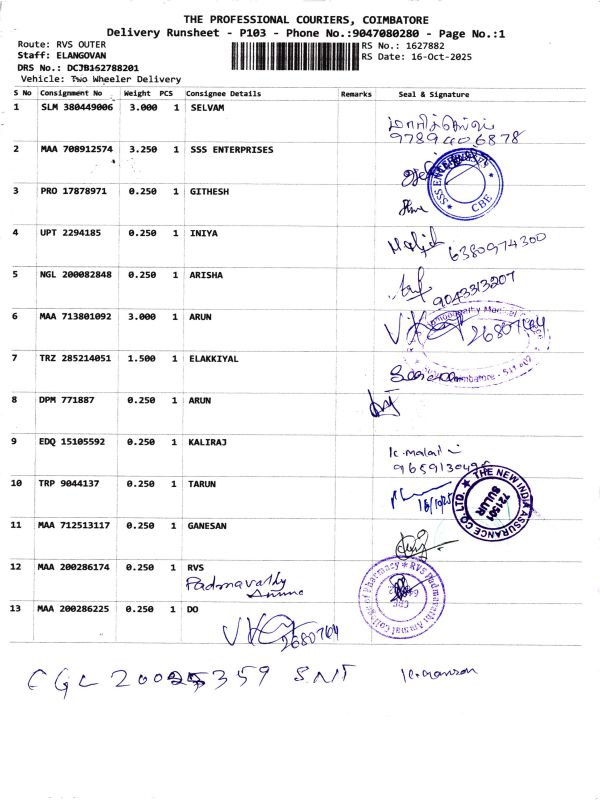 THE PROFESSIONAL COURIERS, COIMBATORE
Delivery Runsheet - P103 - Phone No.:9047080280 - Page No.:1
Route: RVS OUTER RS No.: 1627882
Staff: ELANGOVAN RS Date: 16-Oct-2025
DRS No.: DCJB162788201
Vehicle: Two Wheeler Delivery
S No Consignment No Weight PCS Consignee Details Remarks Seal & Signature
1 SLM 380449006 3.000 1 SELVAM
9789406878
2 MAA 708912574 3.250 1 SSS ENTERPRISES
SSS ENTERPRISES CBE
3 PRO 17878971 0.250 1 GITHESH
4 UPT 2294185 0.250 1 INIYA
6380974300
5 NGL 200082848 0.250 1 ARISHA
9043313207
6 MAA 713801092 3.000 1 ARUN
2680764
7 TRZ 285214051 1.500 1 ELAKKIYAL
8 DPM 771887 0.250 1 ARUN
9 EDQ 15105592 0.250 1 KALIRAJ
K. malathi
10 TRP 9044137 0.250 1 TARUN
16/10/25
THE NEW INDIA ASSURANCE CO. LTD.
721501
SULUR
11 MAA 712513117 0.250 1 GANESAN
12 MAA 200286174 0.250 1 RVS
Padmavathy
RVS Padmavathi Ammal College of Pharmacy
13 MAA 200286225 0.250 1 DO
2680764